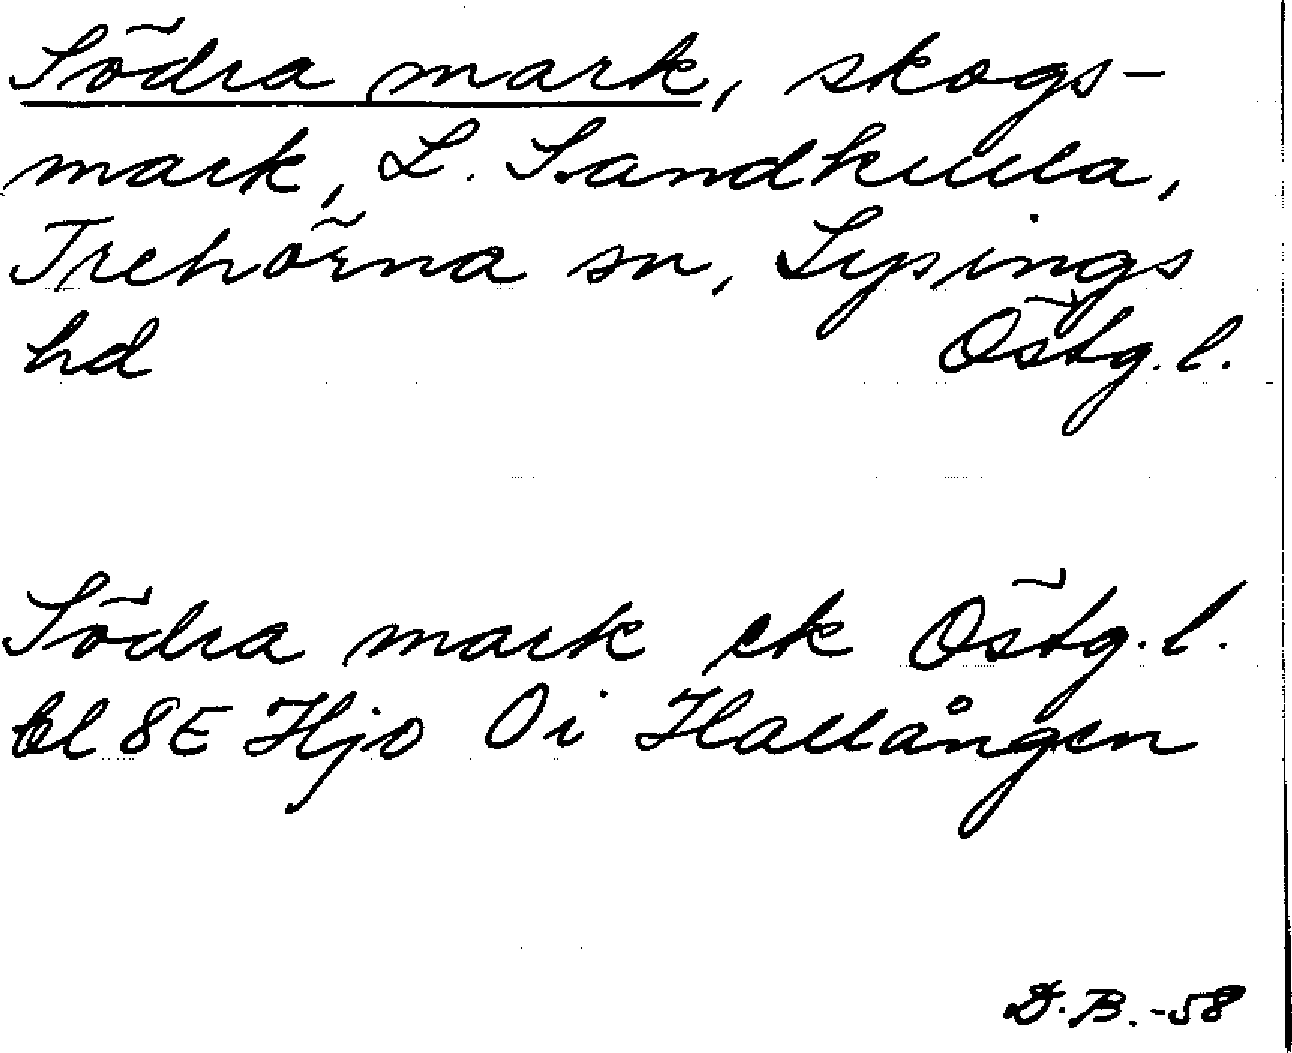 Södra mark, skogs-
mark, L. Sandkulla,
Trehörna sn, Lysings
hd Östg. l.
Södra mark ek Östg. l.
bl 8E Hjo 0i Hallången
D.B.-58